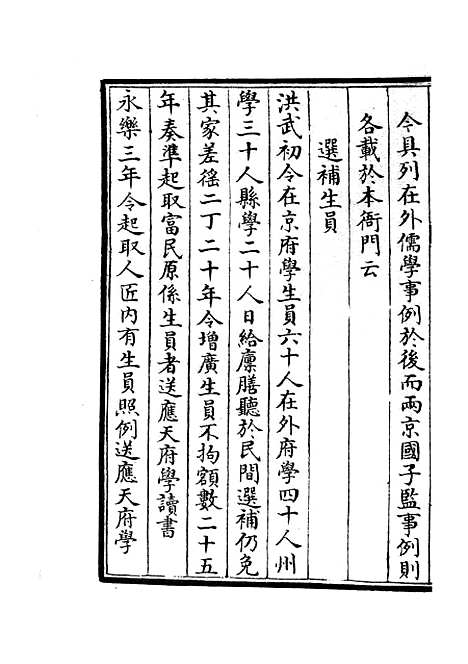 今具列在外儒學事例於後而兩京國子監事例則
各載於本衙門云
選補生員
洪武初令在京府學生員六十人在外府學四十人州
學三十人縣學二十人日給廩膳聽於民間選補仍免
其家差徭二丁二十年令增廣生員不拘額數二十五
年奏準起取富民原係生員者送應天府學讀書
永樂三年令起取人匠內有生員照例送應天府學